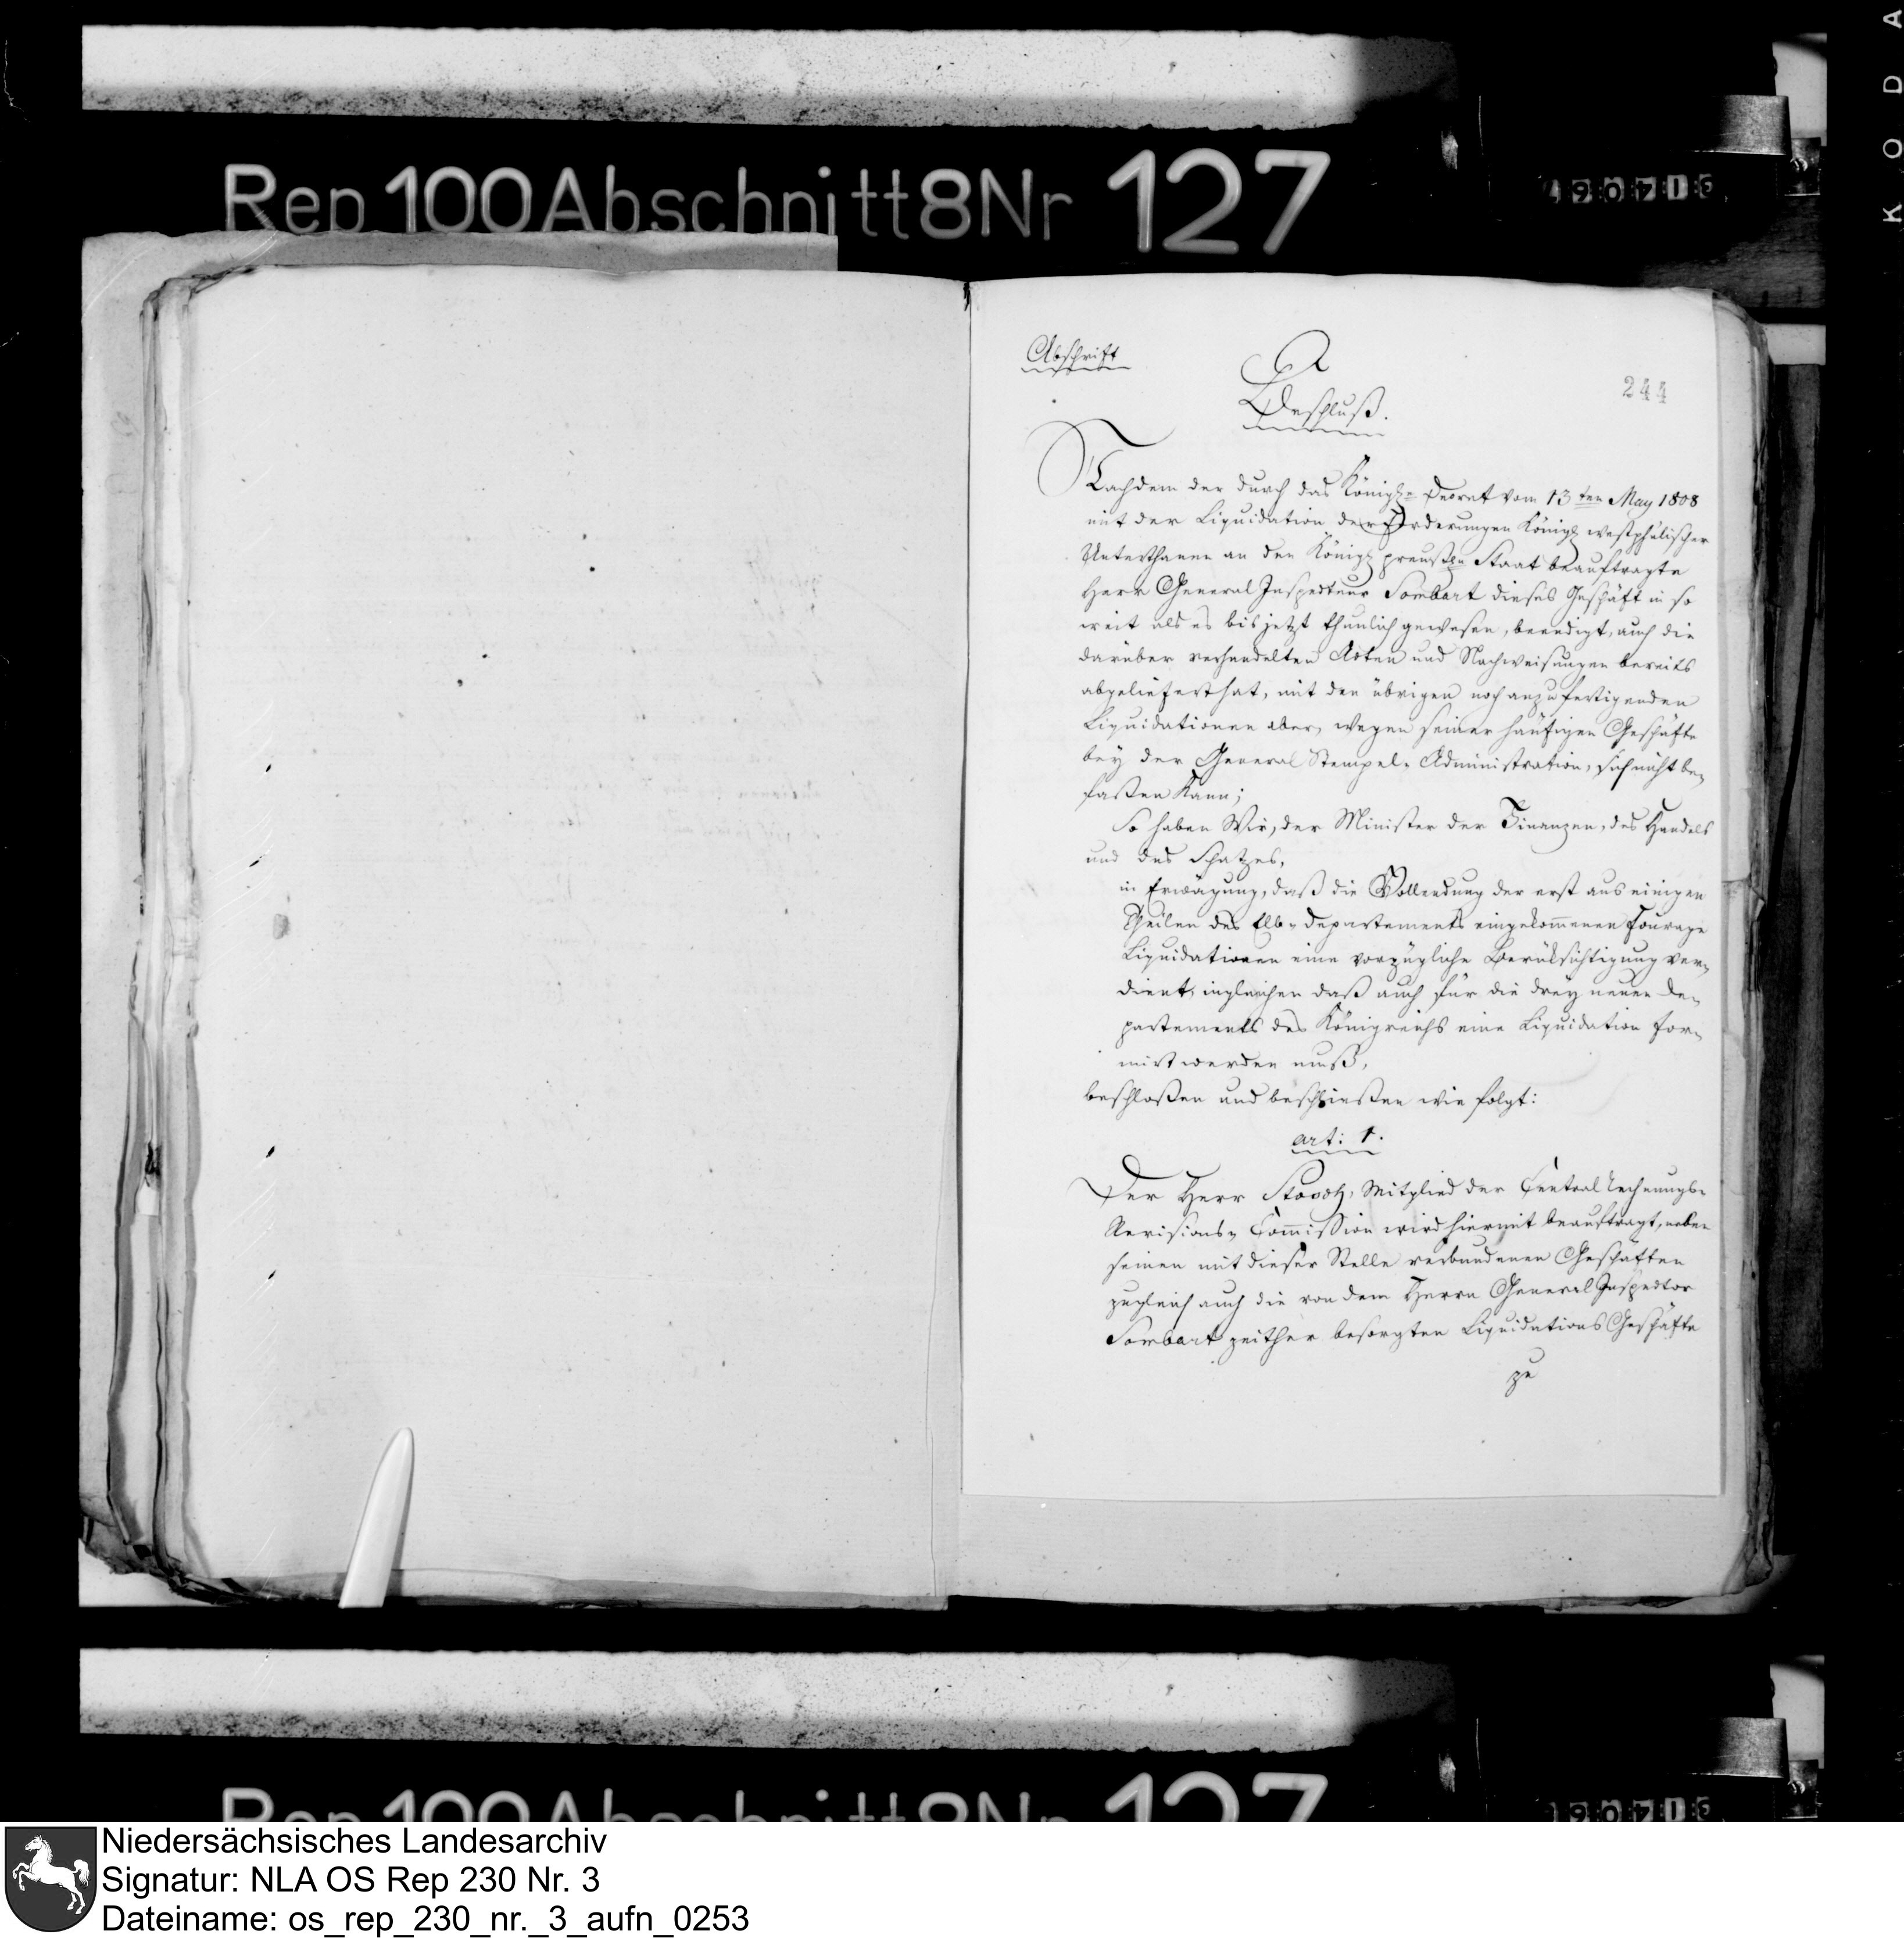 KODA
Rep 100 Abschnitt 8 Nr 127
Abschrift
244
Beschluß.
Nachdem der durch das Königl. Decret vom 13ten May 1808
mit der Liquidation der Forderungen Königl. westphälischer
Unterthanen an den Königl. preuß. Staat beauftragte
Herr General Inspecteur Sombart dieses Geschäft in so
weit als es bis jetzt thunlich gewesen, beendigt, auch die
darüber verhandelten Acten und Nachweisungen bereits
abgeliefert hat, mit den übrigen noch anzufertigenden
Liquidationen aber, wegen seiner häufigen Geschäfte
bey der General Stempel-Administration, sich nicht be-
faßen kann;
So haben Wir, der Minister der Finanzen, des Handels
und des Schatzes,
in Erwägung, daß die Vollendung der erst aus einigen
Theilen des Elb-Departements eingekom̄enen Fourage
Liquidationen eine vorzügliche Berüksichtigung ver-
dient, ingleichen daß auch für die drey neuen De-
partements des Königreichs eine Liquidation for-
mirt werden muß,
beschloßen und beschließen wie folgt:
art: 1.
Der Herr Mitglied der Central Rechnungs-
Revisions-Com̄ission wird hiermit beauftragt, neben
seinen mit dieser Stelle verbundenen Geschäften
zugleich auch die von dem Herrn General Inspector
Sombart zeither besorgten Liquidations Geschäfte
zu
Rep 100 Abschnitt 8 Nr 127
Niedersächsisches Landesarchiv
Signatur: NLA OS Rep 230 Nr. 3
Dateiname: os_rep_230_nr._3_aufn_0253